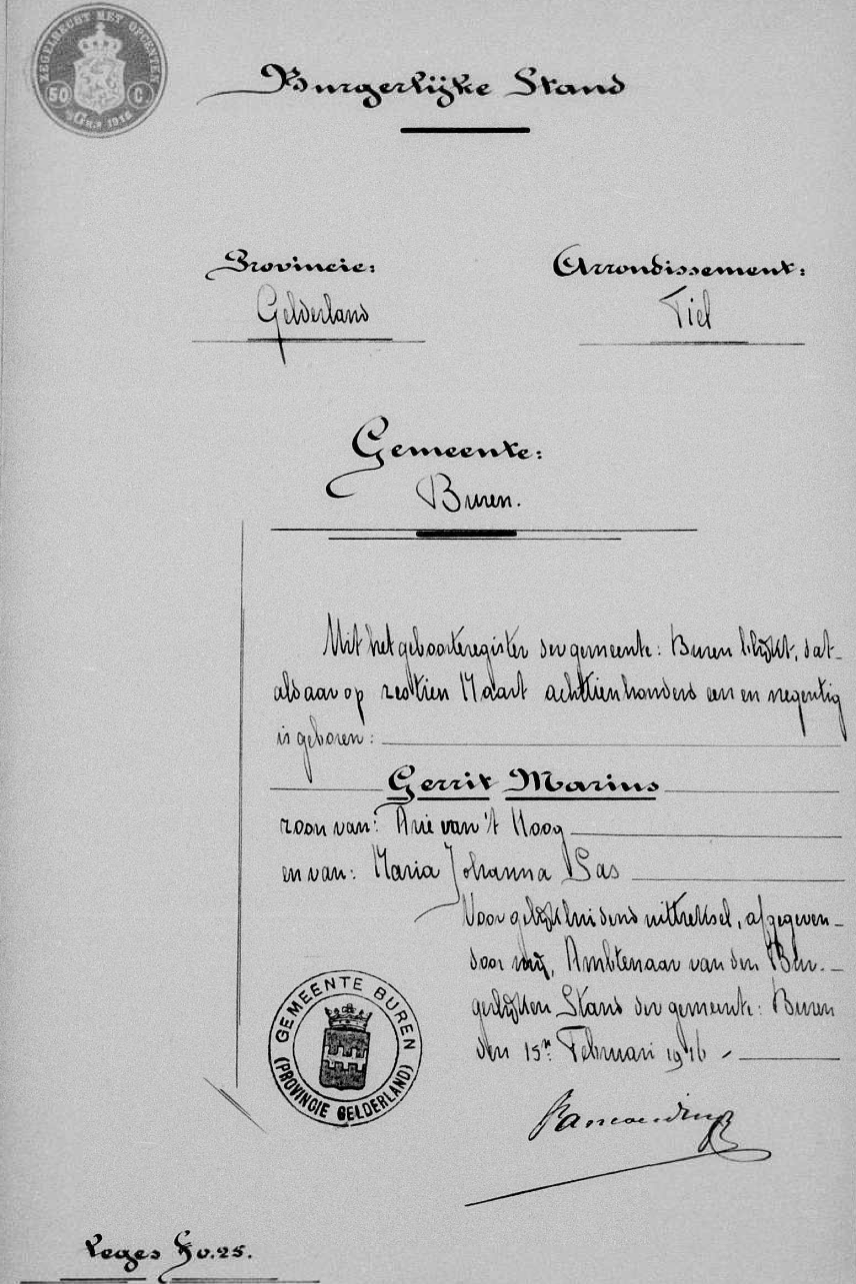 ZEGELRECHT MET OPCENTEN
50 C.
1916
Burgerlijke Stand
Provincie: Arrondissement:
Gelderland Tiel
Gemeente:
Buren.
Uit het geboorteregister der gemeente: Buren blijkt, dat
aldaar op zestien Maart achttienhonderd een en negentig
is geboren:
Gerrit Marius
zoon van: Arie van 't Hoog
en van: Maria Johanna Bas
Voor gelijkluidend uittreksel, afgegeven
door mij, Ambtenaar van den Bur-
gerlijken Stand der gemeente: Buren
den 15n. Februari 1916
GEMEENTE BUREN
(PROVINCIE GELDERLAND)
Leges ƒ 0.25.